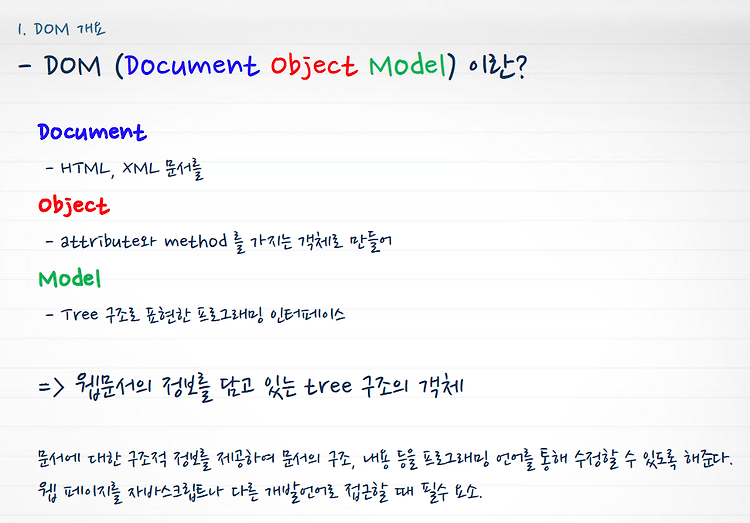 1. DOM 개요
- DOM (Document Object Model) 이란?
Document
- HTML, XML 문서를
Object
- attribute와 method 를 가지는 객체로 만들어
Model
- Tree 구조로 표현한 프로그래밍 인터페이스
=> 웹문서의 정보를 담고 있는 tree 구조의 객체
문서에 대한 구조적 정보를 제공하여 문서의 구조, 내용 등을 프로그래밍 언어를 통해 수정할 수 있도록 해준다.
웹 페이지를 자바스크립트나 다른 개발언어로 접근할 때 필수 요소.